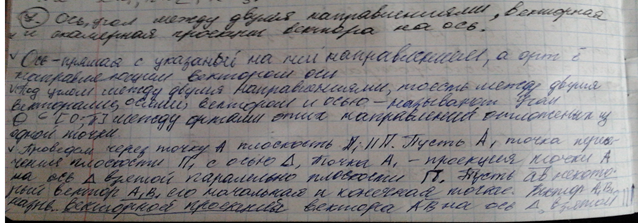 Ось, угол между двумя направлениями, векторная
и скалярная проекции вектора на ось.
Ось - прямая с указаный на ней направлением, а орт ē
направляющим вектором оси
Под углом между двумя направлениями, тоесть между двумя
векторами, осями, вектором и осью - называют угол
между ортами этих направлений отложеных из
одной точки
Проведем через точку A плоскость П₁ || П. Пусть A₁ точка пересе-
чения плоскости П₁ с осью Δ. Точка A₁ - проекция точки A
на ось Δ взятой паралельно плоскости П. Пусть AB некото-
рый вектор A₁B₁ его начальная и конечная точки. Вектор A₁B₁
назыв. векторной проекцией вектора AB на ось Δ взятой